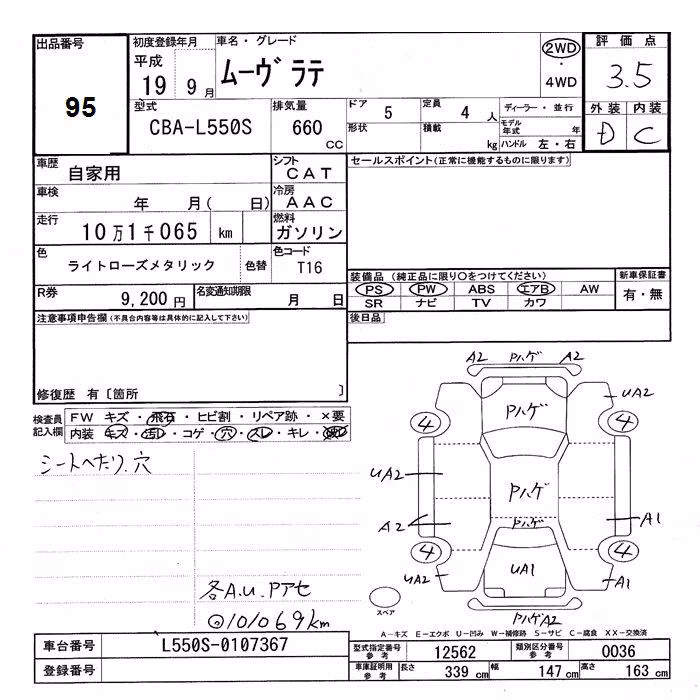 出品番号 95
初度登録年月 平成 19年 9月
車名・グレード ムーヴ ラテ
2WD・4WD
評価点 3.5
外装 D 内装 C
型式 CBA-L550S
排気量 660 CC
ドア 5
定員 4 人
形状
積載 kg
ディーラー・並行
モデル年式 年
ハンドル 左・右
車歴 自家用
シフト CAT
セールスポイント(正常に機能するものに限ります)
車検 年 月( 日)
冷房 AAC
走行 10万1千065 km
燃料 ガソリン
色 ライトローズメタリック 色替
色コード T16
装備品 (純正品に限り○をつけてください)
PS PW ABS エアB AW
SR ナビ TV カワ
新車保証書 有・無
R券 9,200円
名変通知期限 月 日
後日品
注意事項申告欄(不具合内容等は具体的に記入して下さい)
修復歴 有〔箇所 〕
検査員記入欄
FW キズ・飛石・ヒビ割・リペア跡・×要
内装 キズ・汚レ・コゲ・穴・スレ・キレ・
シートヘたり、穴
各A.U.Pアセ
◎101069km
A2 Pハゲ A2
UA2
Pハゲ
4 4
UA2
Pハゲ
A2 Pハゲ A1
4 4
UA2 UA1 A1
スペア
Pハゲ A2
A-キズ E-エクボ U-凹み W-補修跡 S-サビ C-腐食 XX-交換済
車台番号 L550S-0107367
型式指定番号 参考 12562
類別区分番号 参考 0036
登録番号
車庫証明用 参考 長さ 339 cm 幅 147 cm 高さ 163 cm